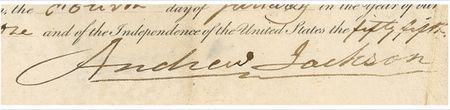 the Fourth day of January in the Year of our
one and of the Independence of the United States the fifty fifth.
Andrew Jackson